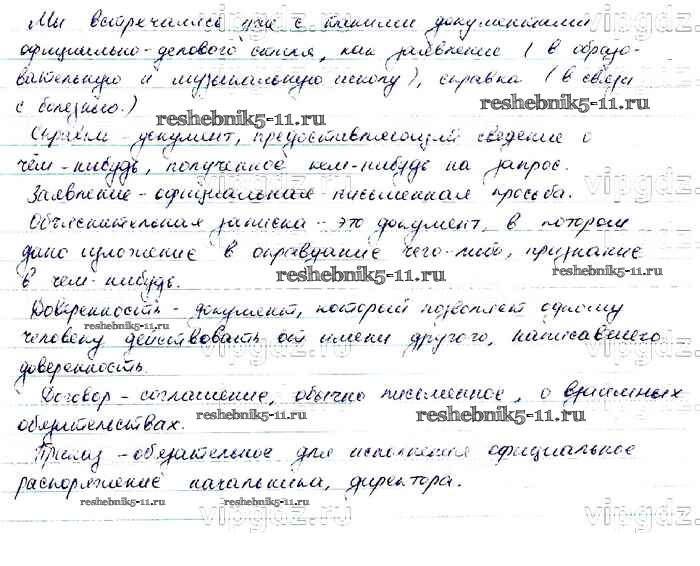 Мы встречались уже с такими документами
официально-делового стиля, как заявление (в образо-
вательную и музыкальную школу), справка (в связи
с болезнью.)
Справка - документ, предоставляющий сведение о
чём-нибудь, полученное кем-нибудь на запрос.
Заявление - официальная письменная просьба.
Объяснительная записка - это документ, в котором
дано изложение в оправдание чего-либо, признание
в чем-нибудь.
Доверенность - документ, который позволяет одному
человеку действовать от имени другого, написавшего
доверенность.
Договор - соглашение, обычно письменное, о взаимных
обязательствах.
Приказ - обязательное для исполнения официальное
распоряжение начальника, директора.
vipgdz.ru
reshebnik5-11.ru
reshebnik5-11.ru
vipgdz.ru
vipgdz.ru
reshebnik5-11.ru
reshebnik5-11.ru
reshebnik5-11.ru
vipgdz.ru
vipgdz.ru
reshebnik5-11.ru
reshebnik5-11.ru
reshebnik5-11.ru
vipgdz.ru
vipgdz.ru